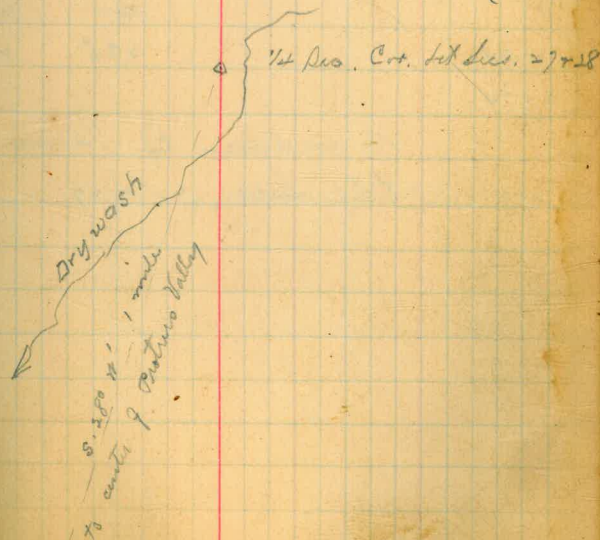 1/4 Sec. Cor. bet Secs. 27 & 28
Dry wash
S. 28° W. 1 mile
to center of Valley